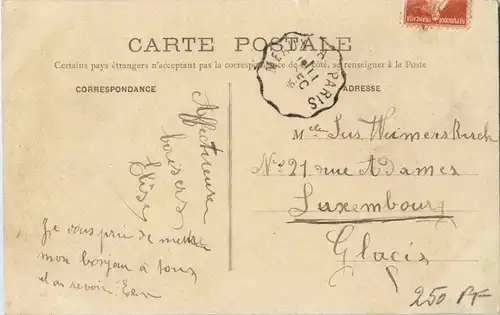 CARTE POSTALE
Certains pays étrangers n'acceptant pas la correspondance de ce côté, se renseigner à la Poste
CORRESPONDANCE
ADRESSE
PARIS
Affectueux
baisers
Elise
Je vous prie de mettre
mon bonjour à tous
et au revoir Elise
Melle Jus Weimerskirch
No 21 rue Adames
Luxembourg
Glacis
250